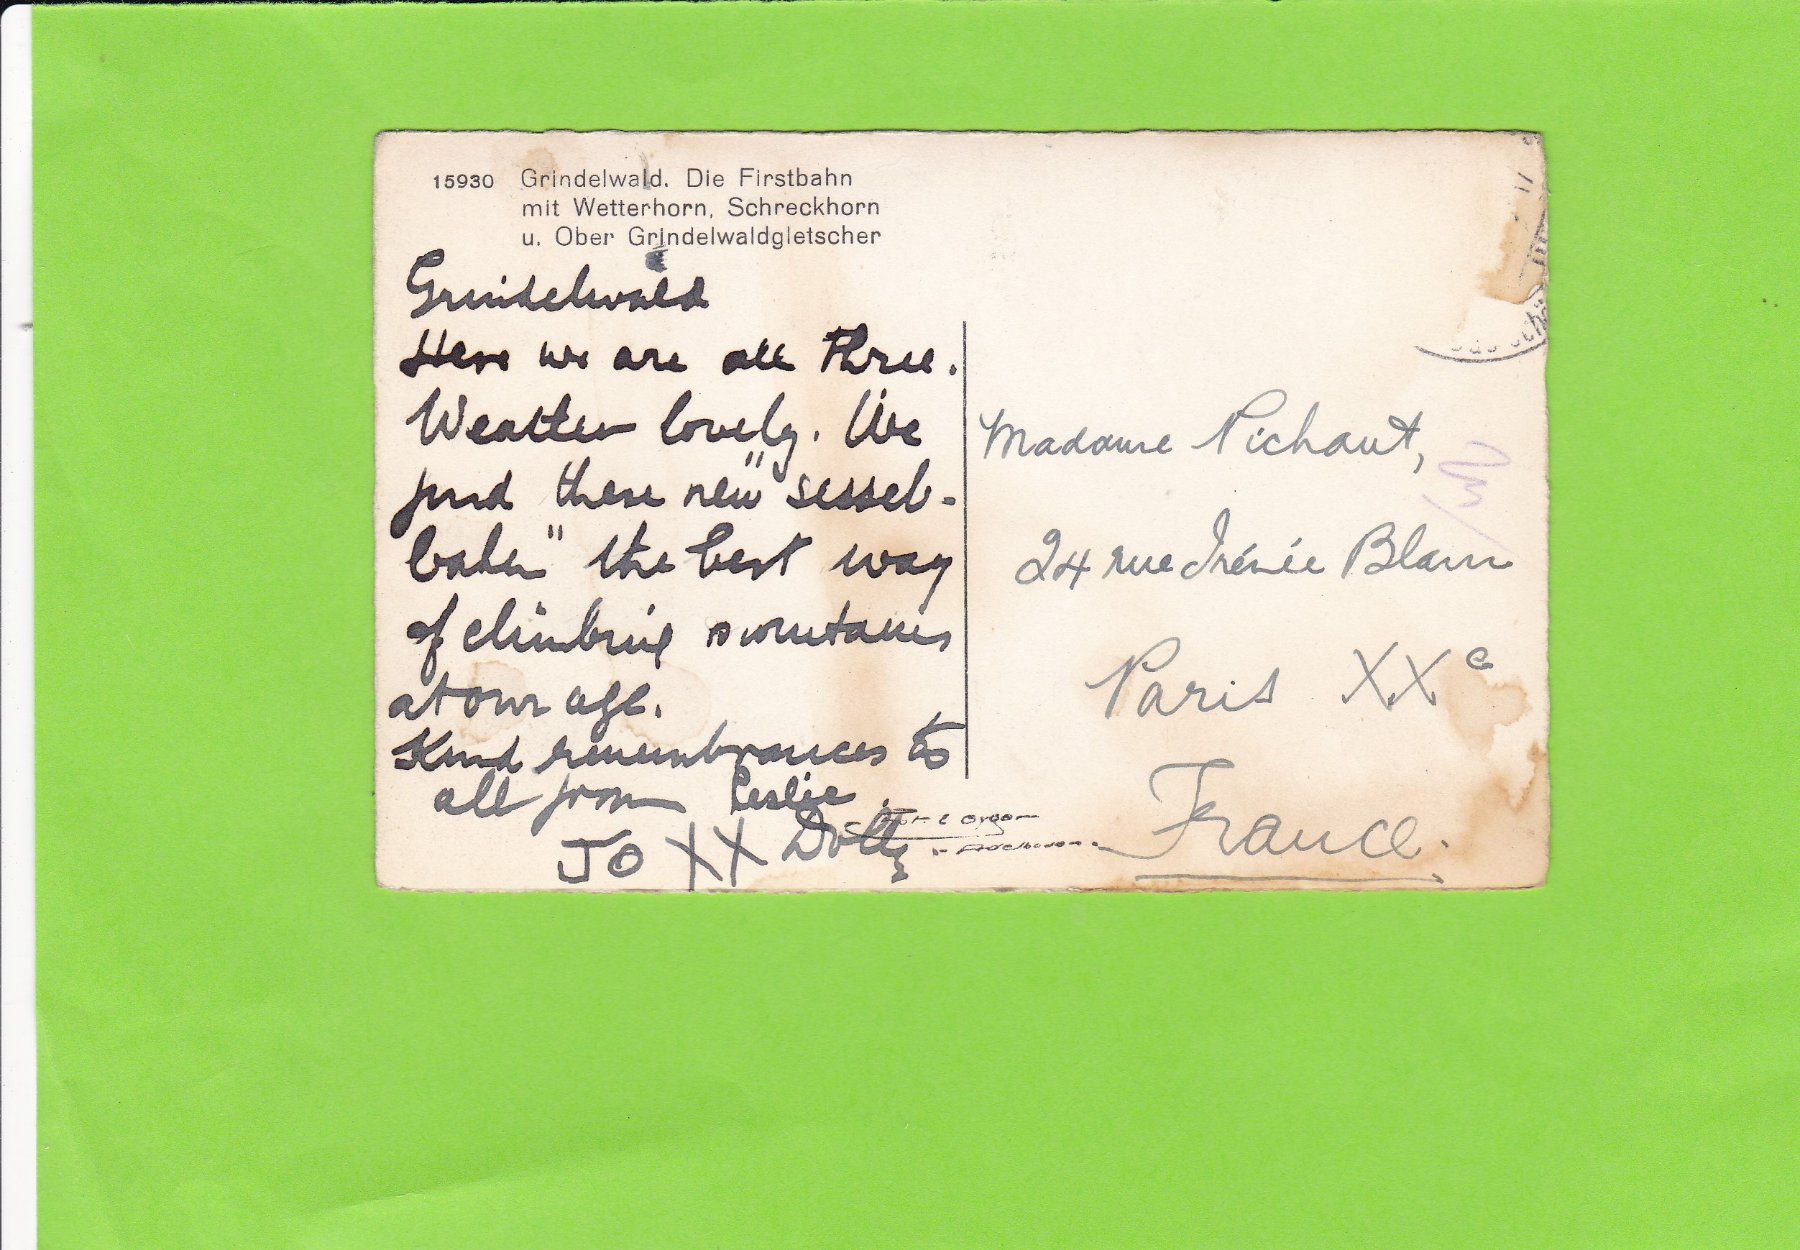 15930 Grindelwald. Die Firstbahn
mit Wetterhorn, Schreckhorn
u. Ober Grindelwaldgletscher
Grindelwald
Here we are all three.
Weather lovely. We
find these new "sessel-
bahn" the best way
of climbing mountains
at our age.
Kind remembrances to
all from Leslie.
JO XX Dolly
Madame Pichaut,
24 rue Irénée Blanc
Paris XXe
France.